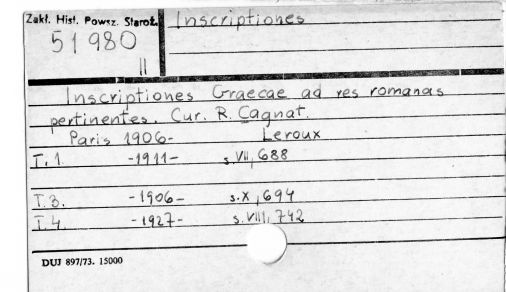 Zakł. Hist. Powsz. Staroż.
Inscriptiones
51980
II
Inscriptiones Graecae ad res romanas
pertinentes. Cur. R. Cagnat.
Paris 1906- Leroux
T. 1. -1911- s. VII, 688
T. 3. -1906- s. X, 694
T. 4. -1927- s. VIII, 742
DUJ 897/73. 15000